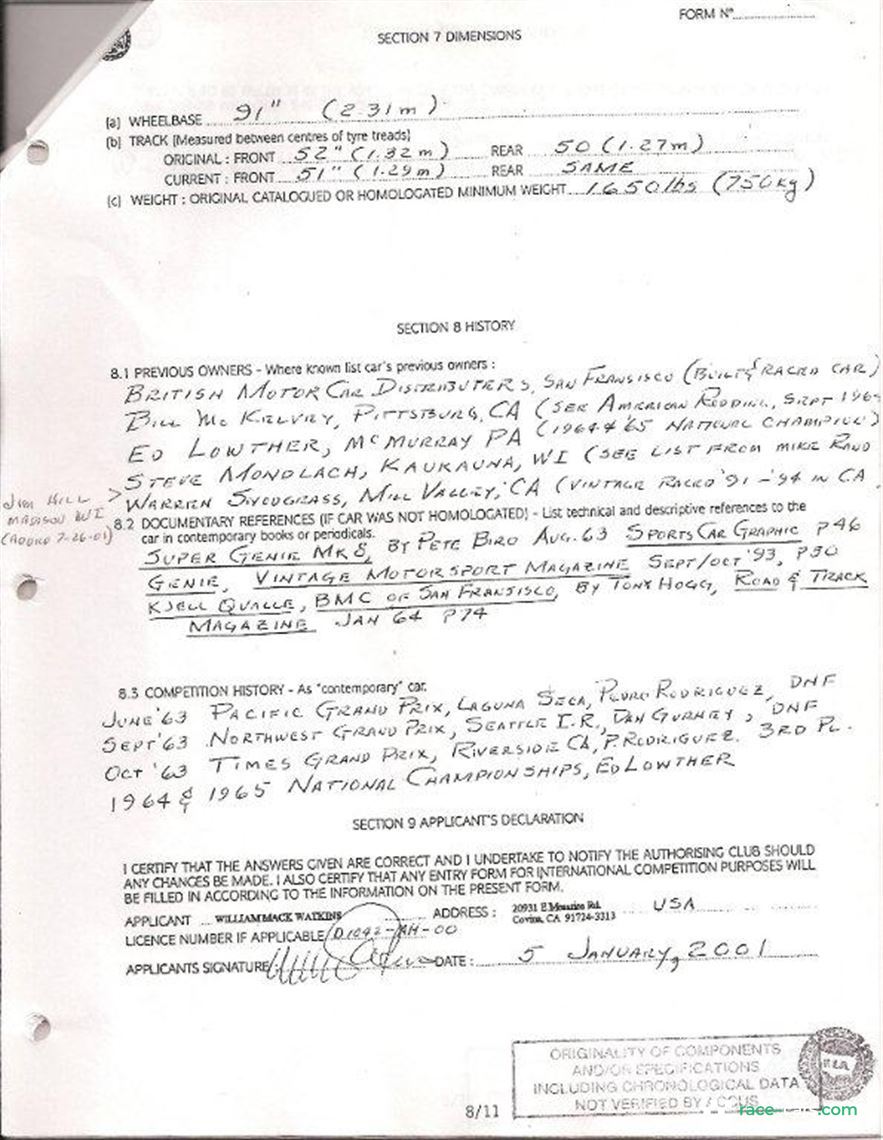 FORM Nº
SECTION 7 DIMENSIONS
(a) WHEELBASE 91" (2.31m)
(b) TRACK (Measured between centres of tyre treads)
ORIGINAL : FRONT 52" (1.32m) REAR 50 (1.27m)
CURRENT : FRONT 51" (1.29m) REAR SAME
(c) WEIGHT : ORIGINAL CATALOGUED OR HOMOLOGATED MINIMUM WEIGHT 1650lbs (750kg)
SECTION 8 HISTORY
8.1 PREVIOUS OWNERS - Where known list car's previous owners :
BRITISH MOTOR CAR DISTRIBUTERS, SAN FRANSISCO (BUILT & RACED CAR)
BILL MCKELVEY, PITTSBURG, CA (SEE AMERICAN RODDING, SEPT 196
ED LOWTHER, MCMURRAY PA (1964 & '65 NATIONAL CHAMPION)
STEVE MONDLACH, KAUKAUNA, WI (SEE LIST FROM MIKE RAND
JIM HILL
MADISON WI
(ADDED 7-26-01)
> WARREN SYCOGRASS, MILL VALLEY, CA (VINTAGE RACED '91 - '94 IN CA
8.2 DOCUMENTARY REFERENCES (IF CAR WAS NOT HOMOLOGATED) - List technical and descriptive references to the
car in contemporary books or periodicals.
SUPER GENIE MK8, BY PETE BIRO AUG. 63 SPORTS CAR GRAPHIC P46
GENIE, VINTAGE MOTORSPORT MAGAZINE SEPT/OCT '93, P30
KJELL QVALLE, BMC OF SAN FRANSISCO, BY TONY HOGG, ROAD & TRACK
MAGAZINE JAN 64 P74
8.3 COMPETITION HISTORY - As "contemporary" car.
JUNE '63 PACIFIC GRAND PRIX, LAGUNA SECA, PEDRO RODRIGUEZ, DNF
SEPT '63 NORTHWEST GRAND PRIX, SEATTLE I.R., DAN GURNEY, DNF
OCT '63 TIMES GRAND PRIX, RIVERSIDE CA, P. RODRIGUEZ. 3RD PL.
1964 & 1965 NATIONAL CHAMPIONSHIPS, ED LOWTHER
SECTION 9 APPLICANT'S DECLARATION
I CERTIFY THAT THE ANSWERS GIVEN ARE CORRECT AND I UNDERTAKE TO NOTIFY THE AUTHORISING CLUB SHOULD
ANY CHANGES BE MADE. I ALSO CERTIFY THAT ANY ENTRY FORM FOR INTERNATIONAL COMPETITION PURPOSES WILL
BE FILLED IN ACCORDING TO THE INFORMATION ON THE PRESENT FORM.
APPLICANT WILLIAM MACK WATKINS ADDRESS : 20931 E. Rd. USA
Covina, CA 91724-3313
LICENCE NUMBER IF APPLICABLE -00
APPLICANTS SIGNATURE: DATE : 5 JANUARY, 2001
ORIGINALITY OF COMPONENTS
AND/OR SPECIFICATIONS
INCLUDING CHRONOLOGICAL DATA
NOT VERIFIED BY ACCUS
F.I.A.
8/11
.com